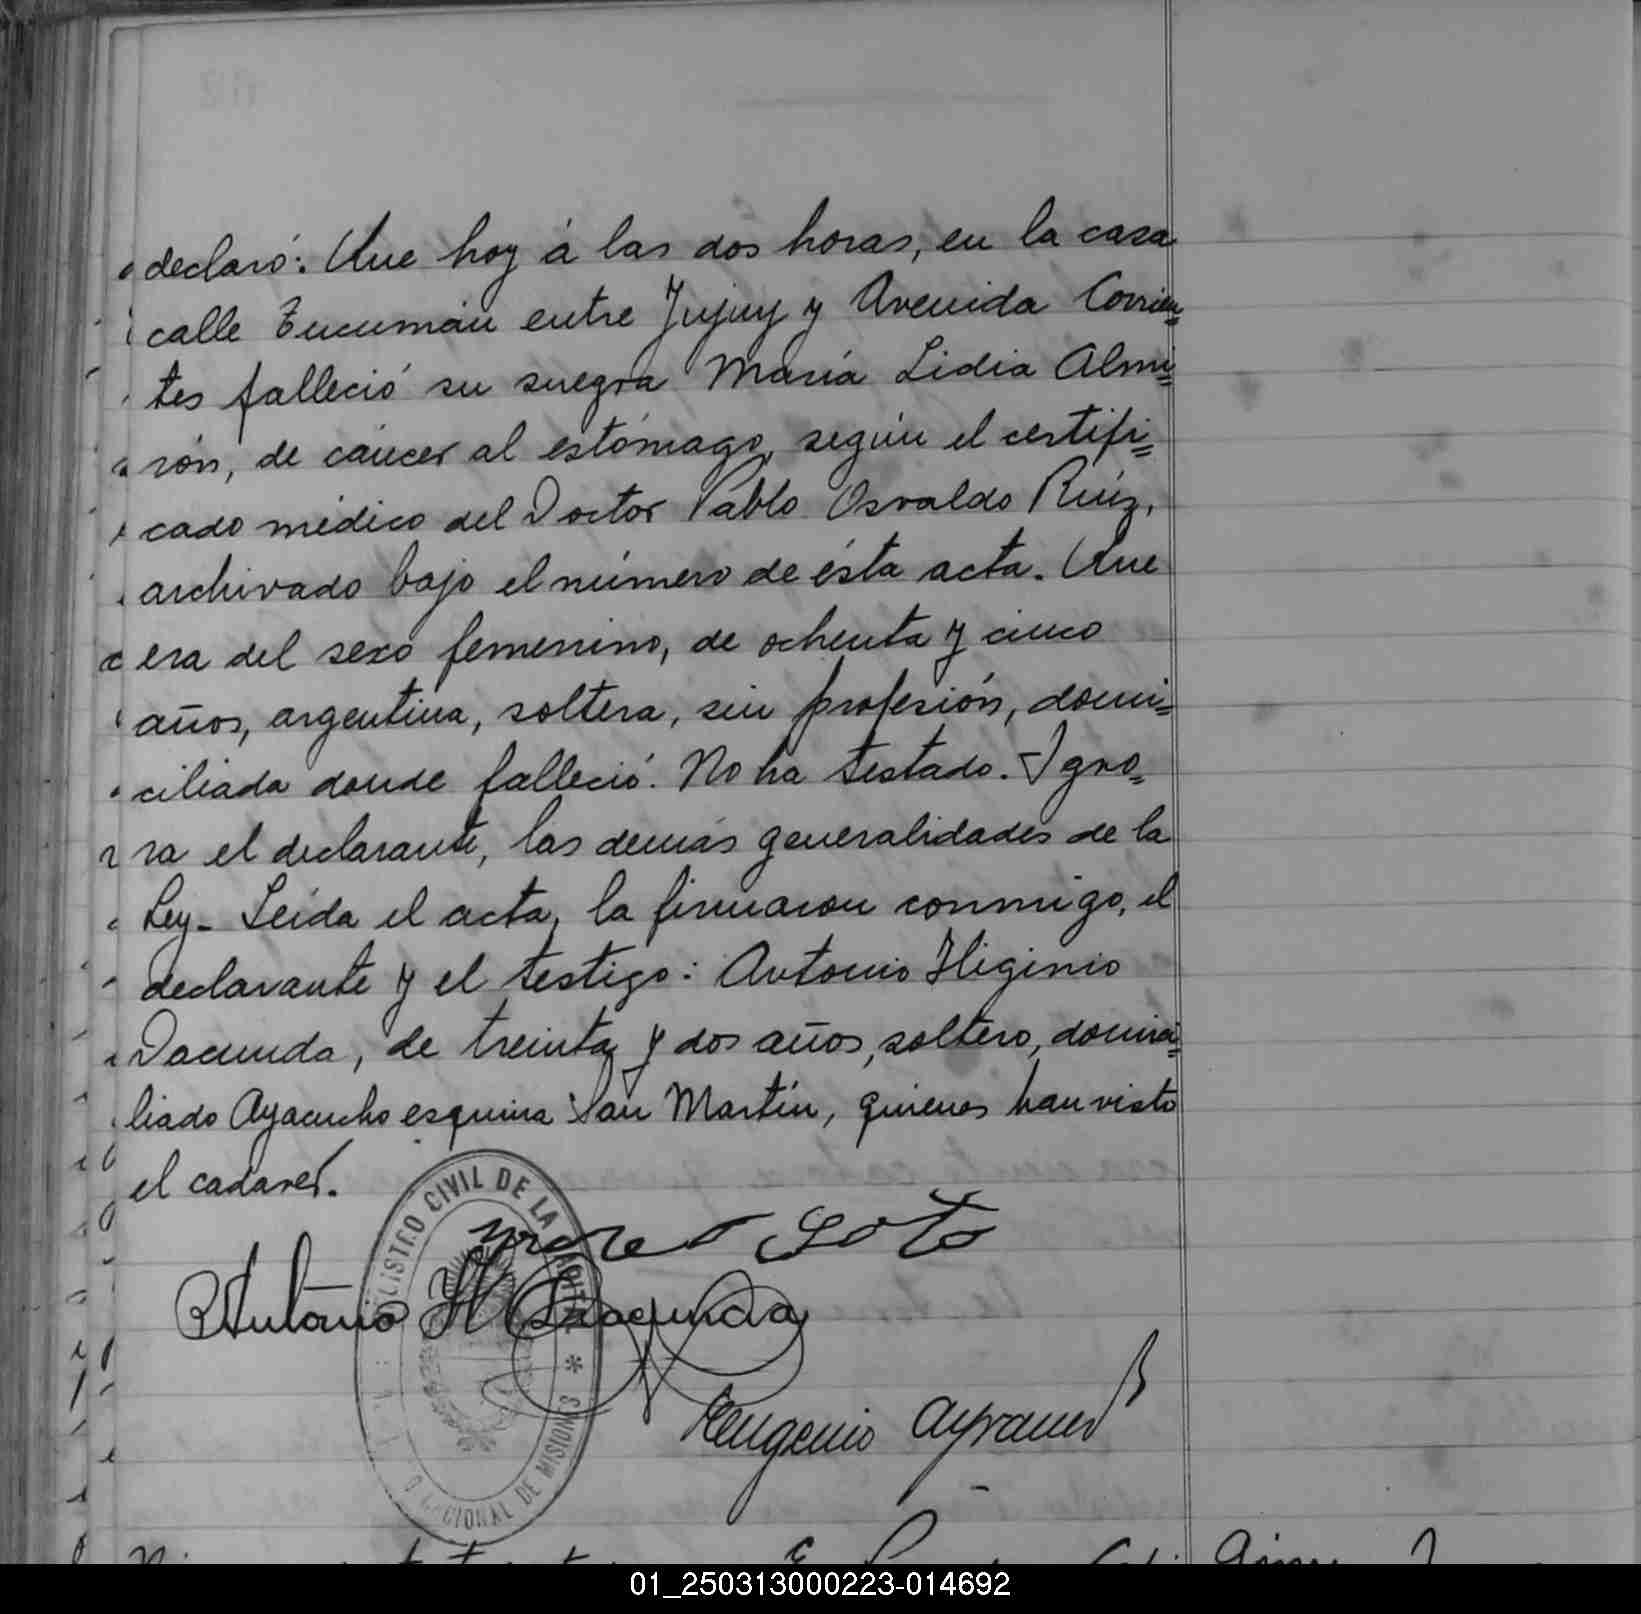 declaró: Que hoy á las dos horas, en la casa
calle Tucumán entre Jujuy y Avenida Corrien=
tes falleció su suegra María Lidia Almi=
rón, de cáncer al estómago, según el certifi=
cado médico del Doctor Pablo Osvaldo Ruíz,
archivado bajo el número de ésta acta. Que
era del sexo femenino, de ochenta y cinco
años, argentina, soltera, sin profesión, domi=
ciliada donde falleció. No ha testado. Igno=
ra el declarante, las demás generalidades de la
Ley. Leída el acta, la firmaron conmigo, el
declarante y el testigo: Antonio Higinio
Dacunda, de treinta y dos años, soltero, domici=
liado Ayacucho esquina San Martín, quienes han visto
el cadaver.
REGISTRO CIVIL DE LA CAPITAL
Soto
Antonio H Dacunda
NACIONAL DE MISIONES
Eugenio
01_250313000223-014692